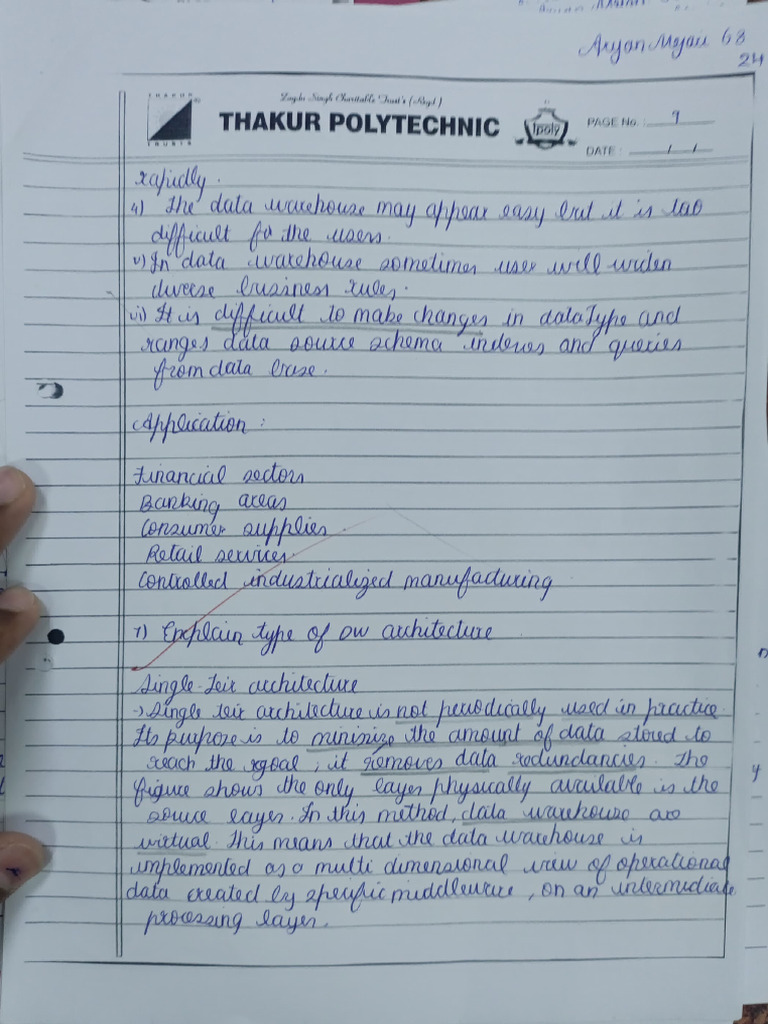 Aryan 68
24
THAKUR
TRUSTS
Zagdu Singh Charitable Trust's (Regd.)
THAKUR POLYTECHNIC
tpoly
PAGE No. : 9
DATE : / /
rapidly.
4) The data warehouse may appear easy but it is too
difficult fo the users.
v) In data warehouse sometimes user will widen
diverse business rules.
vi) It is difficult to make changes in data Type and
ranges data source schema indexes and queries
from data base.
Application :
Financial sectors
Banking areas
Consumer supplies.
Retail services.
Controlled industrialized manufacturing
7) Explain type of DW architecture
Single-Teir architecture
→ Single teir architecture is not periodically used in practice.
Its purpose is to minimize the amount of data stored to
reach the goal, it removes data redundancies. The
figure shows the only layer physically available is the
source layer. In this method, data warehouse are
virtual. This means that the data warehouse is
implemented as a multi dimensional view of operational
data created by specific middleware, on an intermediate
processing layer.